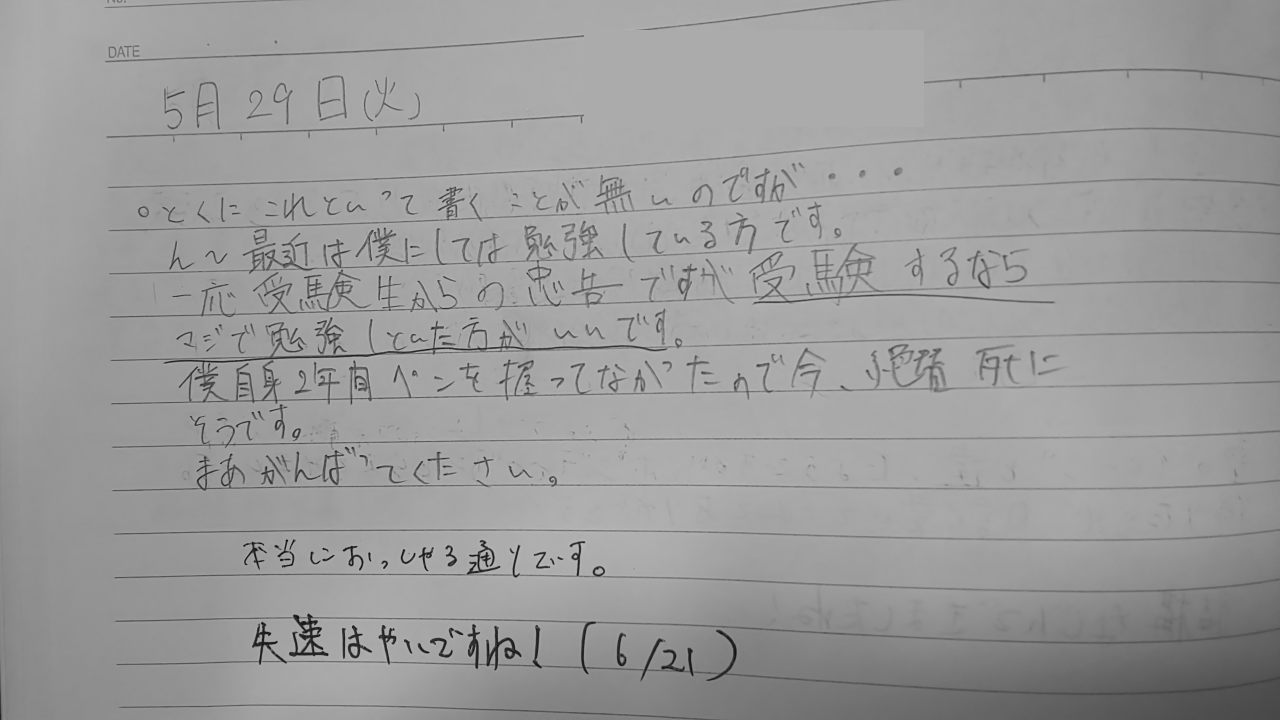 DATE
5月29日(火)
。とくにこれといって書くことが無いのですが・・・
ん～最近は僕にしては勉強している方です。
一応受験生からの忠告ですが受験するなら
マジで勉強しといた方がいいです。
僕自身2年間ペンを握ってなかったので今、絶賛死に
そうです。
まあがんばってください。
本当におっしゃる通りです。
失速はやいですね!(6/21)